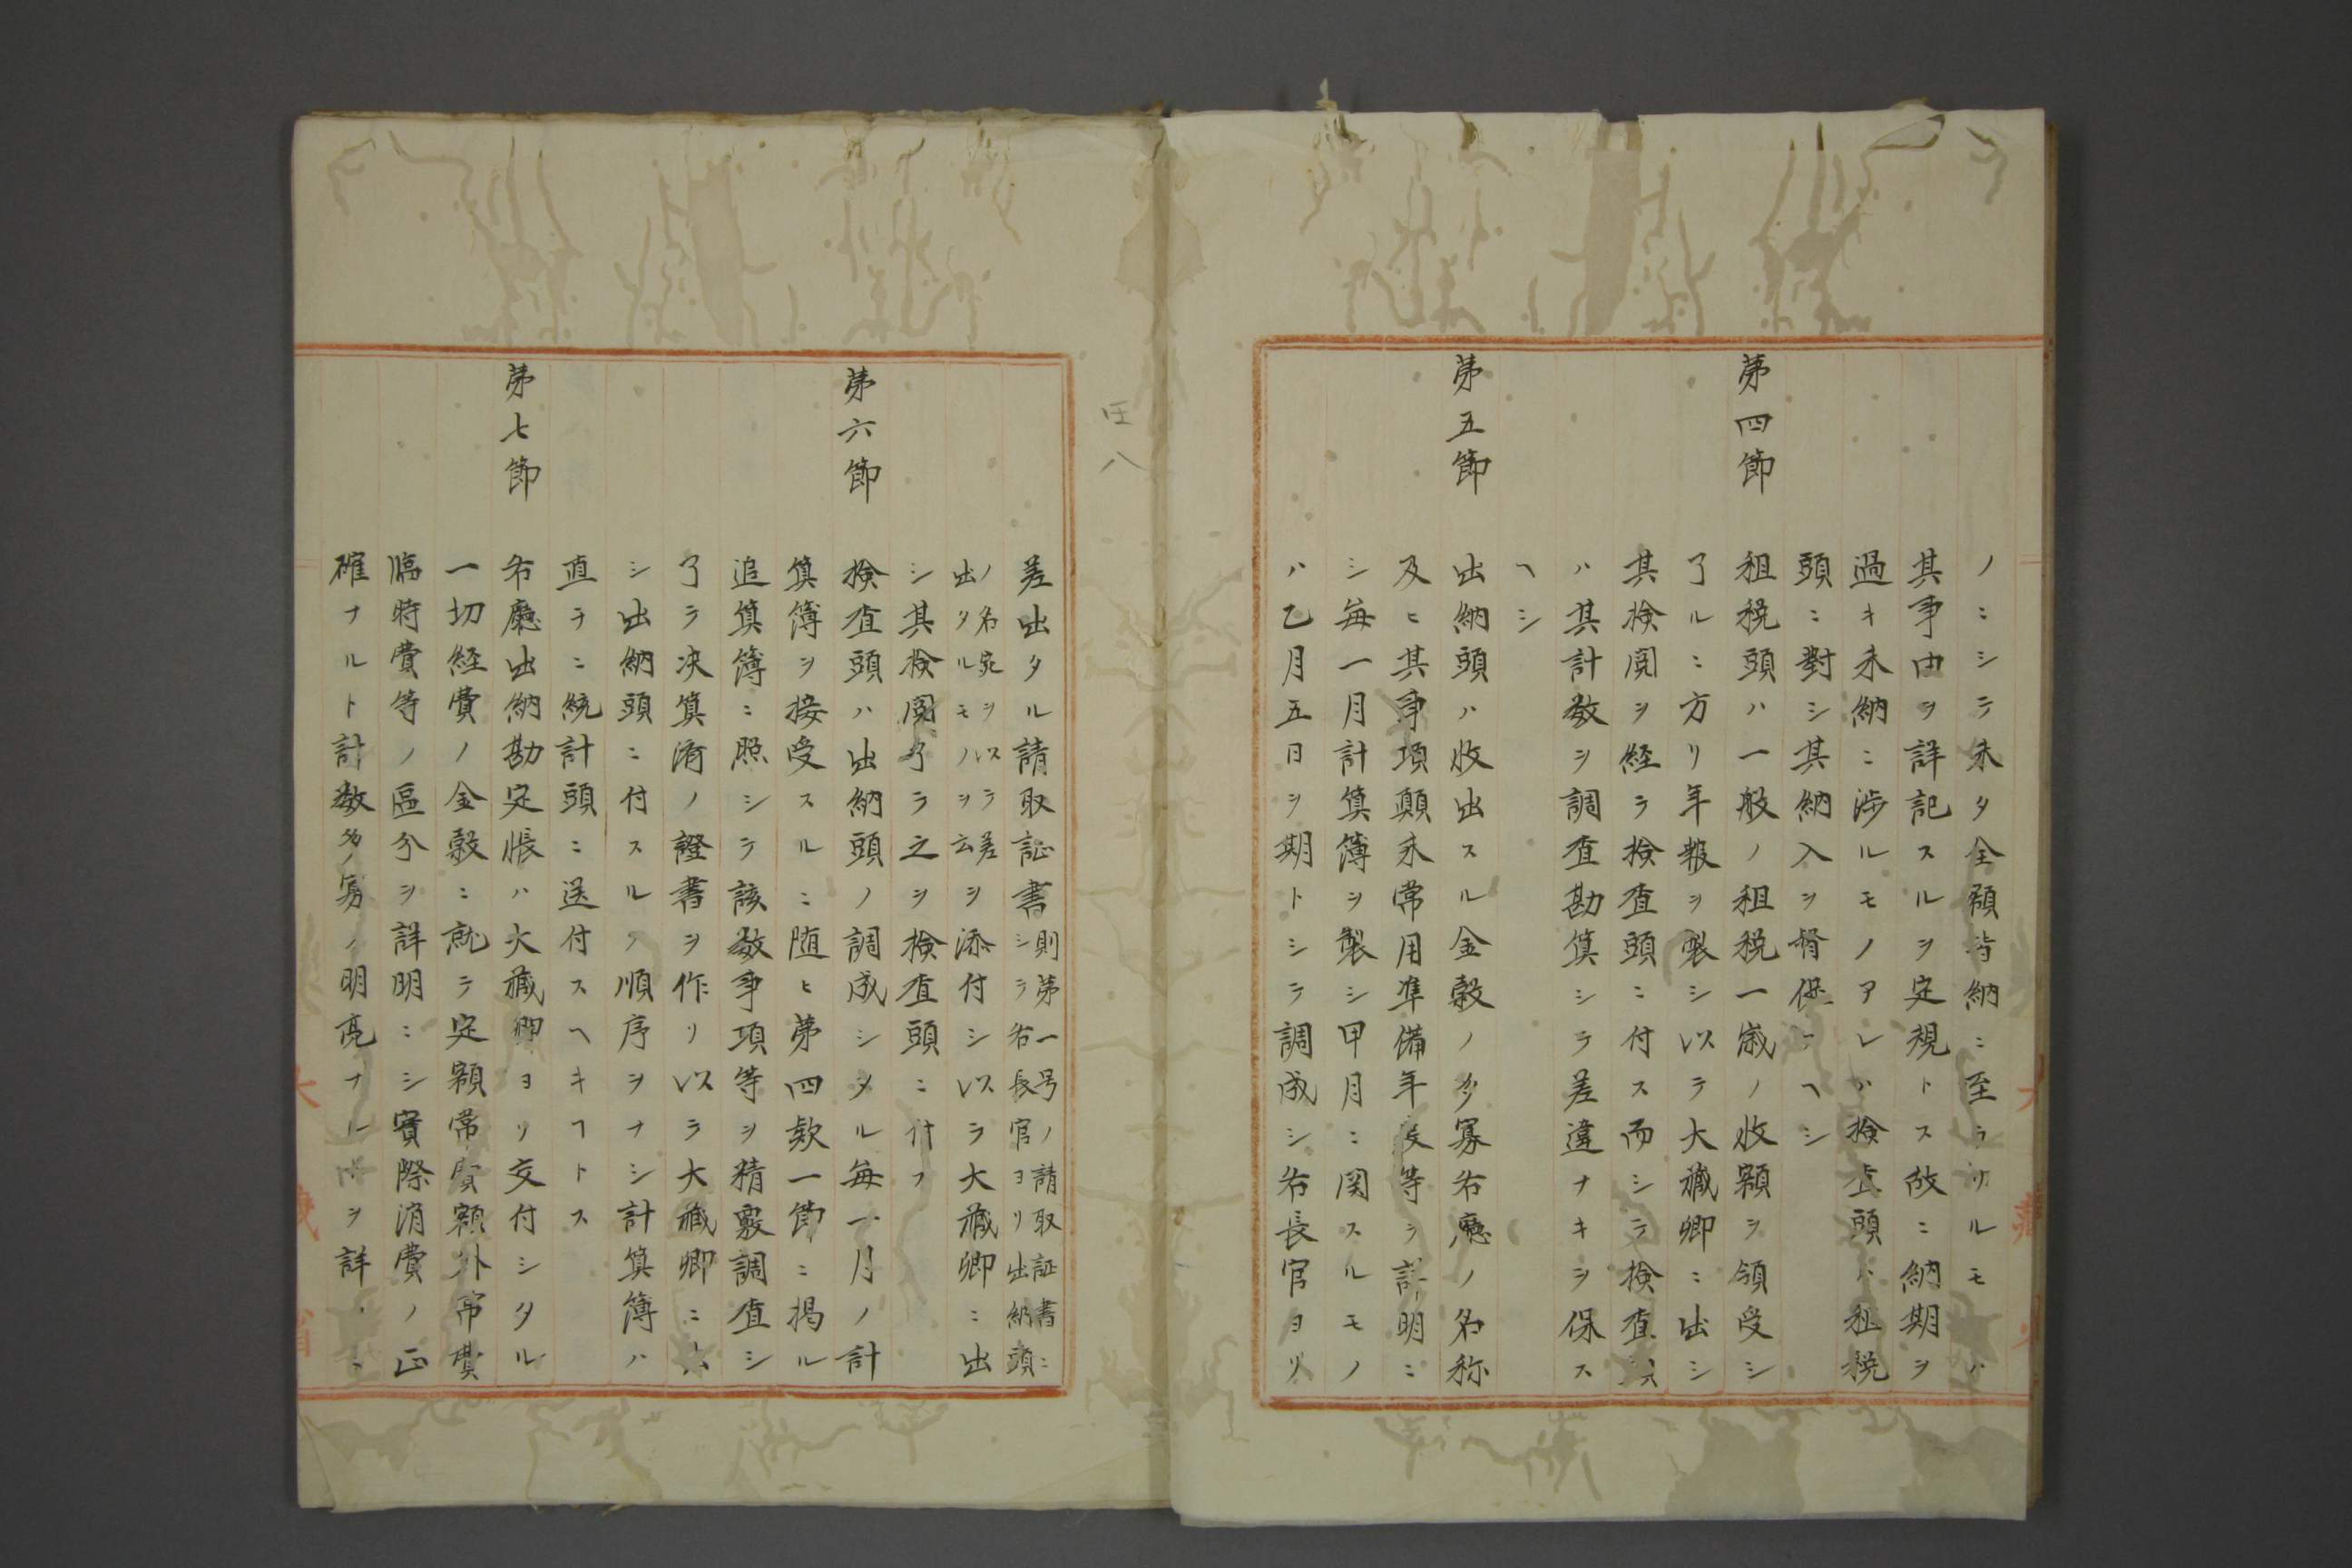 ノニシテ未タ全額皆納ニ至ラサルモノハ
其事由ヲ詳記スルヲ定規トス故ニ納期ヲ
過キ未納ニ渉ルモノアレハ検査頭ハ租税
頭ニ對シ其納入ヲ督促スヘシ
第四節
租税頭ハ一般ノ租税一歳ノ收額ヲ領受シ
了ルニ方リ年報ヲ製シ以テ大藏卿ニ出シ
其検閲ヲ経テ検査頭ニ付ス而シテ検査頭
ハ其計数ヲ調査勘算シテ差違ナキヲ保ス
ヘシ
第五節
出納頭ハ收出スル金穀ノ多寡各廳ノ名称
及ヒ其事項顛末常用準備年度等ヲ詳明ニ
シ毎一月計算簿ヲ製シ甲月ニ関スルモノ
ハ乙月五日ヲ期トシテ調成シ各長官ヨリ
差出タル請取証書則第一号ノ請取証書ニ
シテ各長官ヨリ出納頭
ノ名宛ヲ以テ差
出タルモノヲ云ヲ添付シ以テ大藏卿ニ出
シ其検閲了テ之ヲ検査頭ニ付ス
第六節
検査頭ハ出納頭ノ調成シタル毎一月ノ計
算簿ヲ接受スルニ随ヒ第四款一節ニ掲ル
追算簿ニ照シテ該数事項等ヲ精覈調査シ
了テ决算済ノ證書ヲ作リ以テ大藏卿ニ
シ出納頭ニ付スルノ順序ヲナシ計算簿ハ
直チニ統計頭ニ送付スヘキヿトス
第七節
各廳出納勘定帳ハ大藏卿ヨリ交付シタル
一切経費ノ金穀ニ就テ定額常費額外常費
臨時費等ノ區分ヲ詳明ニシ實際消費ノ正
確ナルト計数多寡ノ明亮ナルヲ詳
大藏省
五八